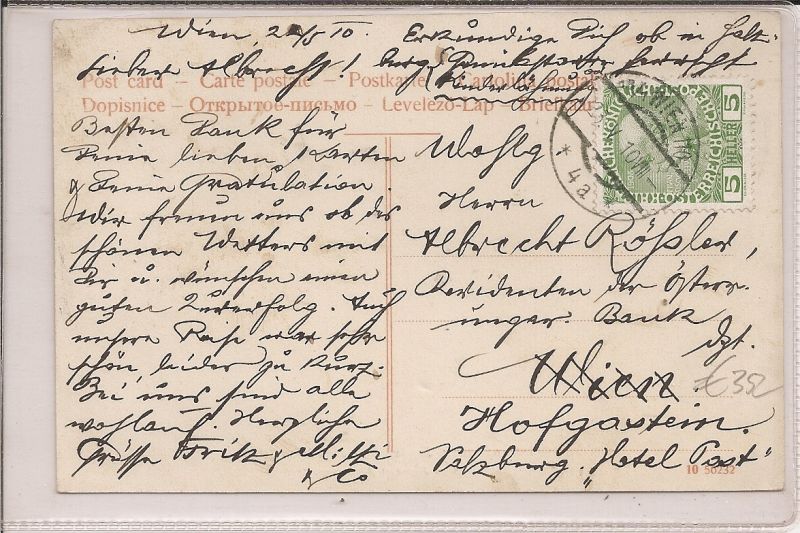 Wien 2 /5 10.
Lieber Albrecht!
Erkundige Dich ob in Salz-
burg
Post card — Carte postale — Postkarte — Cartolina postale
Dopisnice — Открытое письмо — Levelező-Lap — Briefkaart
Besten Dank für
Deine lieben Karten
& Deine Gratulation.
Wir freuen uns ob des
schönen Wetters mit
Dir u. wünschen einen
guten Kurerfolg. Auch
unsere Reise war sehr
schön, leider zu kurz.
Bei uns sind alle
wohlauf. Herzliche
Grüsse Fritz & Mitzi
& Co
Wohlg
Herrn
Albrecht Rößler,
Revidenten der Österr.
ungar. Bank
dzt.
Wien
Hofgastein.
Salzburg. "Hotel Post"
WIEN
4a
5
HELLER
5
HELLER
€ 352
10 50232